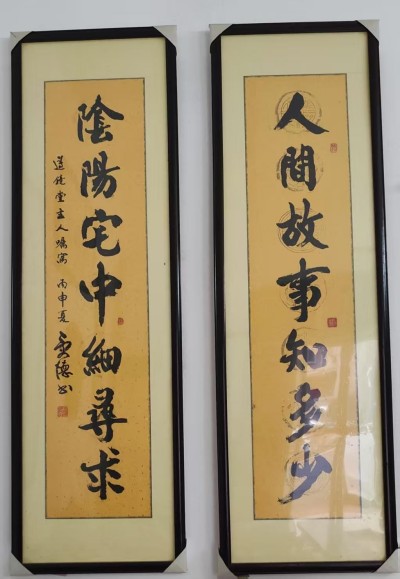 人間故事知多少
陰陽宅中細尋求
道乾堂主人囑書 丙申夏